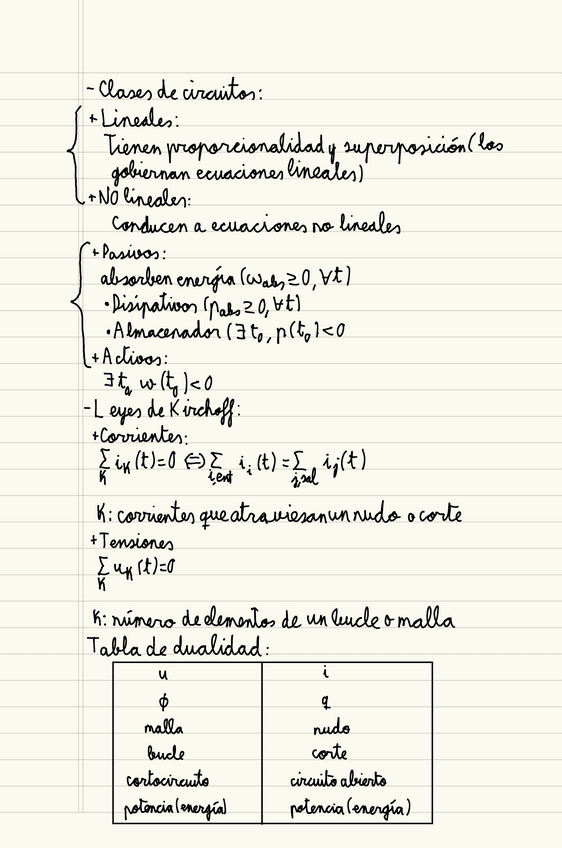 - Clases de circuitos:
+ Lineales:
Tienen proporcionalidad y superposición (los
gobiernan ecuaciones lineales)
+ NO lineales:
Conducen a ecuaciones no lineales
+ Pasivos:
absorben energía (ω_abs ≥ 0, ∀t)
• Disipativos (p_abs ≥ 0, ∀t)
• Almacenador (∃ t₀, p(t₀) < 0
+ Activos:
∃ t₀ w(t₀) < 0
- Leyes de Kirchoff:
+ Corrientes:
∑_K i_K(t) = 0 ⇔ ∑_{i,ent} i_i(t) = ∑_{j,sal} i_j(t)
K: corrientes que atraviesan un nudo o corte
+ Tensiones
∑_K u_K(t) = 0
K: número de elementos de un bucle o malla
Tabla de dualidad:
u i
ϕ q
malla nudo
bucle corte
cortocircuito circuito abierto
potencia (energía) potencia (energía)